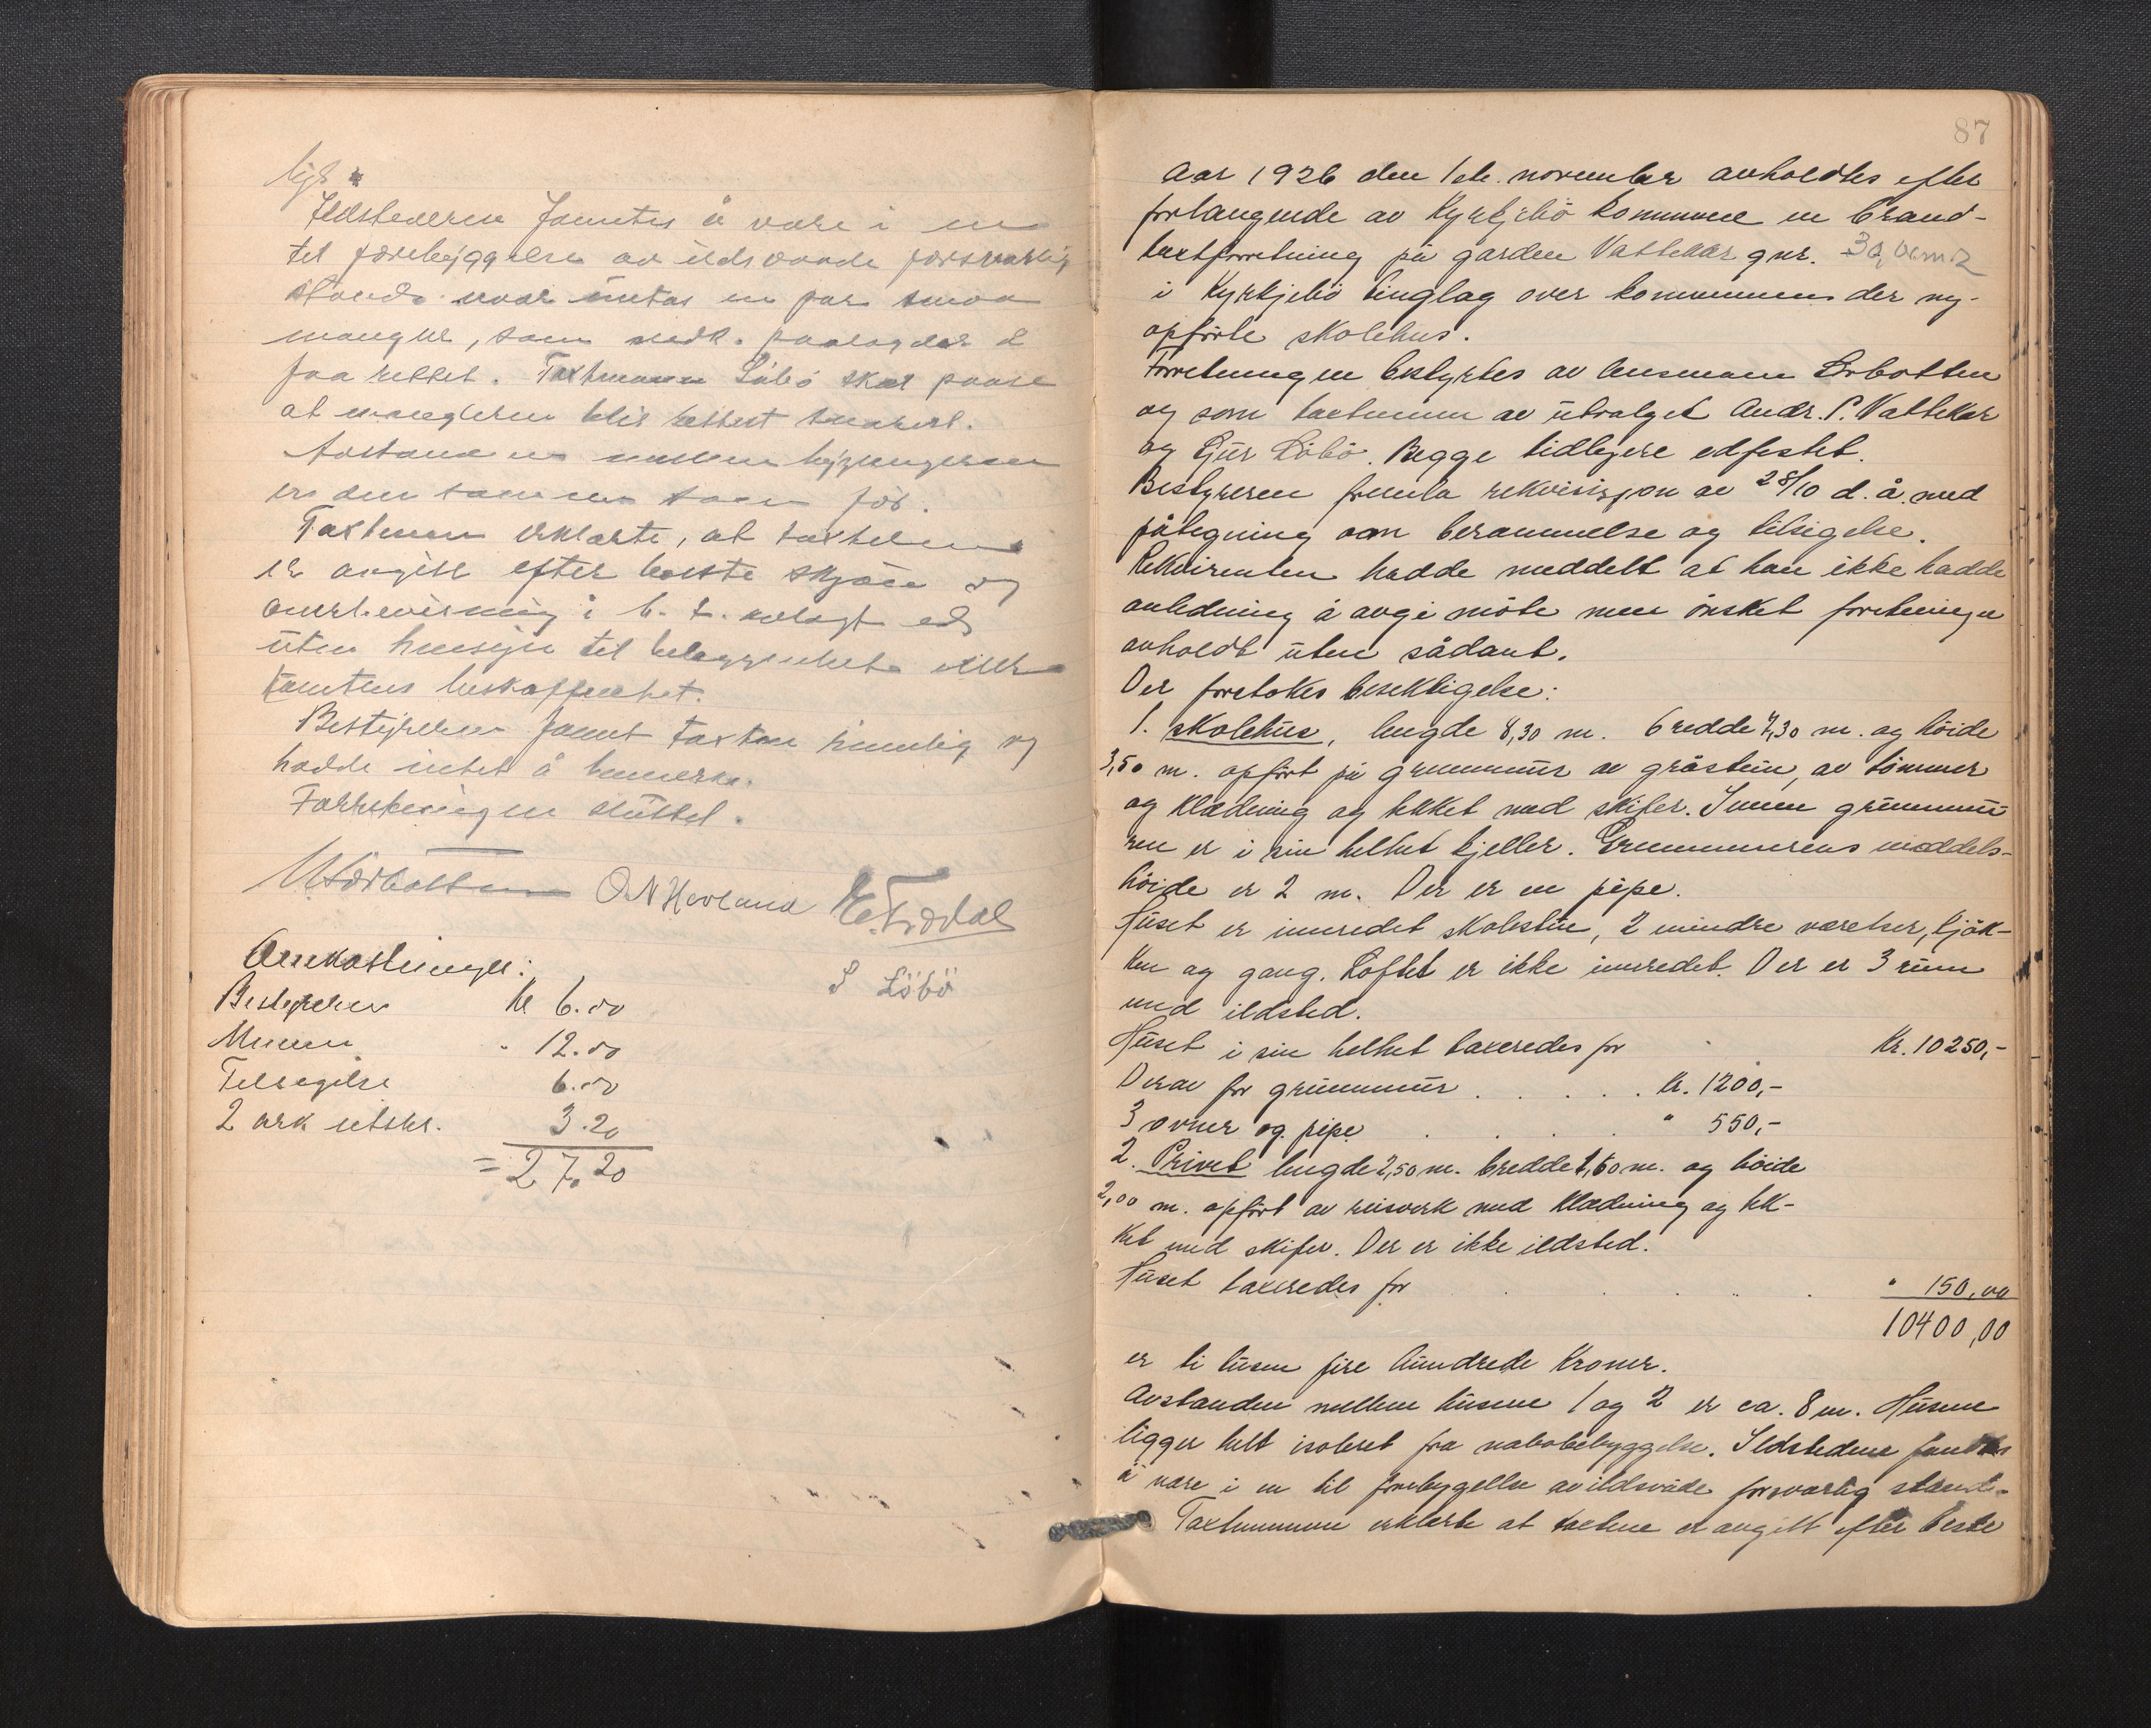 ligt.
Ildstederne fanntes å være i en
til forebyggelse av ildsvaade forsvarlig
stand naar untas en par smaa
mangler, som vedk. paalagdes å
faa rettet. Taxtmann Löbö skal paase
at manglerne blir rettet snarest.
Avstanden mellem bygningerne
er den samme som för.
Taxtmenn erklærte, at taxterne
er avgitt efter beste skjön og
overbevisning i h. t. avlagt ed
uten hensyn til beliggenhet eller
tomtens beskaffenhet.
Bestyreren fannt taxten rimelig og
hadde intet å bemerke.
Forretningen sluttet.
O. N. Hovland
S Löbö
Omkostninger:
Bestyreren Kr 6.00
Menn " 12.00
Tilsigelse 6.00
2 ark utskr. 3.20
= 27.20
87
Aar 1926 den 1ste november avholdtes efter
forlangende av Kyrkjebö kommune en brand-
taxtforretning på garden Vattekar gnr. 30, brn 2
i Kyrkjebö tinglag over kommunens der ny-
opförte skolehus.
Forretningen bestyrtes av lensmannØrbotten
og som taxtmenn av utvalget Andr. P. Vattekar
og Sjur Löbö. Begge tidligere edfestet.
Bestyreren fremla rekvisisjon av 28/10 d. å. med
påtegning om berammelse og tilsigelse.
Rekvirenten hadde meddelt at han ikke hadde
anledning å avgi möte men önsket forretningen
avholdt uten sådant.
Der foretokes besektigelse:
1. Skolehus, lengde 8,30 m. bredde 7,30 m. og höide
3,50 m. opfört på grunnmur av gråstein, av tömmer
og klædning og tekket med skifer. Innen grunnmu-
ren er i sin helhet kjeller. Grunnmurens middels-
höide er 2 m. Der er en pipe.
Huset er innredet skolestue, 2 mindre værelser, kjök-
ken og gang. Loftet er ikke innredet. Der er 3 rum
med ildsted.
Huset i sin helhet taxeredes for Kr. 10250,-
Derav for grunnmur . . . . . kr. 1200,-
3 ovner og pipe . . . . " 550,-
2. Privet lengde 2,50 m. bredde 1,60 m. og höide
2,00 m. opfört av reisverk med klædning og tek-
ket med skifer. Der er ikke ildsted.
Huset taxeredes for . . . . " 150,00
10400,00
er ti tusen fire hundrede kroner.
Avstanden mellem husene 1 og 2 er ca. 8 m. Husene
ligger helt isoleret fra nabobebyggelse. Ildstedene fandtes
å være i en til forebygellse av ildsvåde forsvarlig stand.
Taxtmennene erklærte at taxtene er avgitt efter beste